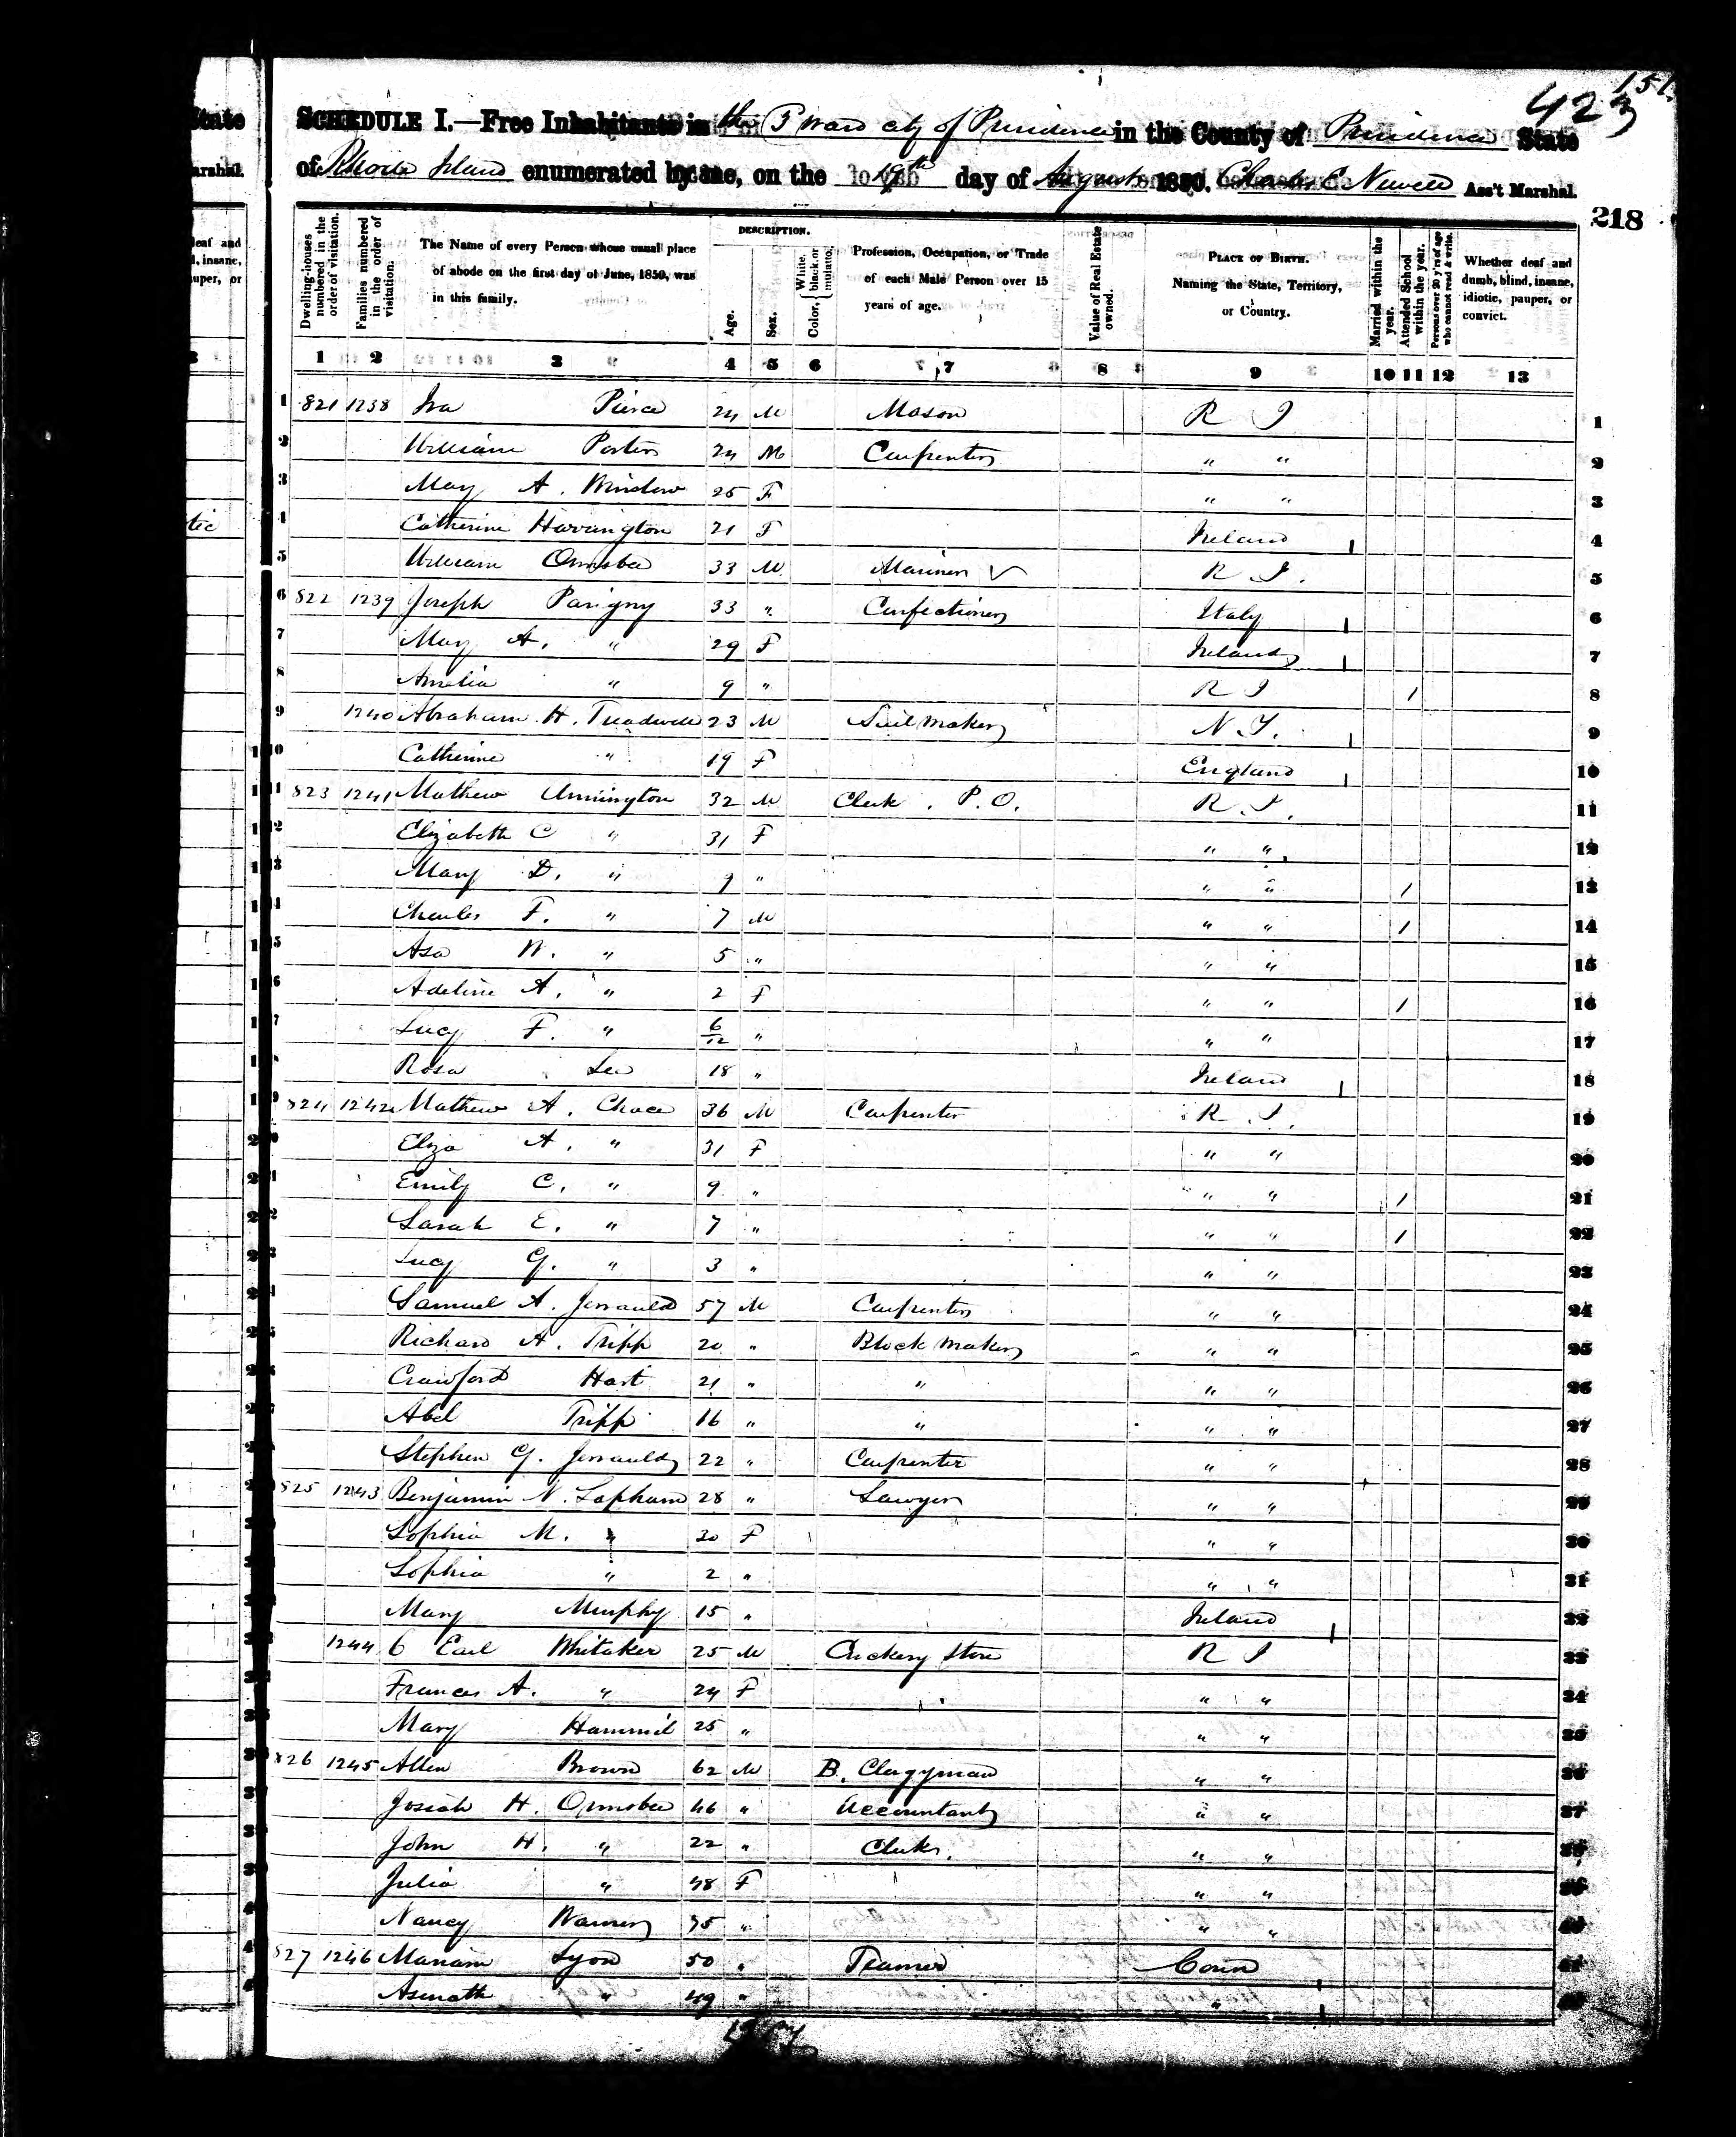 151
423
SCHEDULE I.—Free Inhabitants in the 5 Ward city of Providence in the County of Providence State
of Rhode Island enumerated by me, on the 19th day of August 1850. Charles E Newell Ass't Marshal.
218
Dwelling-houses numbered in the order of visitation. Families numbered in the order of visitation. The Name of every Person whose usual place of abode on the first day of June, 1850, was in this family. DESCRIPTION. Age. Sex. Color, White, black, or mulatto. Profession, Occupation, or Trade of each Male Person over 15 years of age. Value of Real Estate owned. PLACE OF BIRTH. Naming the State, Territory, or Country. Married within the year. Attended School within the year. Persons over 20 y'rs of age who cannot read & write. Whether deaf and dumb, blind, insane, idiotic, pauper, or convict.
1 2 3 4 5 6 7 8 9 10 11 12 13
1 821 1238 Ira Pierce 24 M Mason R I 1
2 William Porter 24 M Carpenter " " 2
3 Mary A. Winslow 25 F " " 3
4 Catherine Harrington 21 F Ireland 4
5 William Ormsbee 33 M Mariner R I. 5
6 822 1239 Joseph Parigny 33 " Confectioner Italy 6
7 Mary A. " 29 F Ireland 7
8 Amelia " 9 " R I 1 8
9 1240 Abraham H. Treadwell 23 M Sail Maker N.Y. 9
10 Catherine " 19 F England 10
11 823 1241 Mathew Armington 32 M Clerk . P.O. R.I. 11
12 Elizabeth C " 31 F " " 12
13 Mary D. " 9 " " " 1 13
14 Charles F. " 7 M " " 1 14
15 Asa W. " 5 " " " 15
16 Adeline A. " 2 F " " 1 16
17 Lucy F. " 6/12 " " " 17
18 Rosa Lee 18 " Ireland 18
19 824 1242 Mathew A. Chace 36 M Carpenter R I. 19
20 Eliza A. " 31 F " " 20
21 Emily C. " 9 " " " 1 21
22 Sarah E. " 7 " " " 1 22
23 Lucy G. " 3 " " " 23
24 Samuel A. Jerrauld 57 M Carpenter " " 24
25 Richard A. Tripp 20 " Block Maker " " 25
26 Crawford Hart 21 " " " " 26
27 Abel Tripp 16 " " " " 27
28 Stephen G. Jerrauld 22 " Carpenter " " 28
29 825 1243 Benjamin N. Lapham 28 " Lawyer " " 29
30 Sophia M. " 30 F " " 30
31 Sophia " 2 " " " 31
32 Mary Murphy 15 " Ireland 32
33 1244 C Earl Whitaker 25 M Crockery Store R I 33
34 Frances A. " 24 F " " 34
35 Mary Hammil 25 " " " 35
36 826 1245 Allen Brown 62 M B. Clergyman " " 36
37 Josiah H. Ormsbee 46 " Accountant " " 37
38 John H. " 22 " Clerk. " " 38
39 Julia " 48 F " " 39
40 Nancy Warner 75 " " " 40
41 827 1246 Lyon 50 " Conn 41
42 Asenath " 49 " " 42